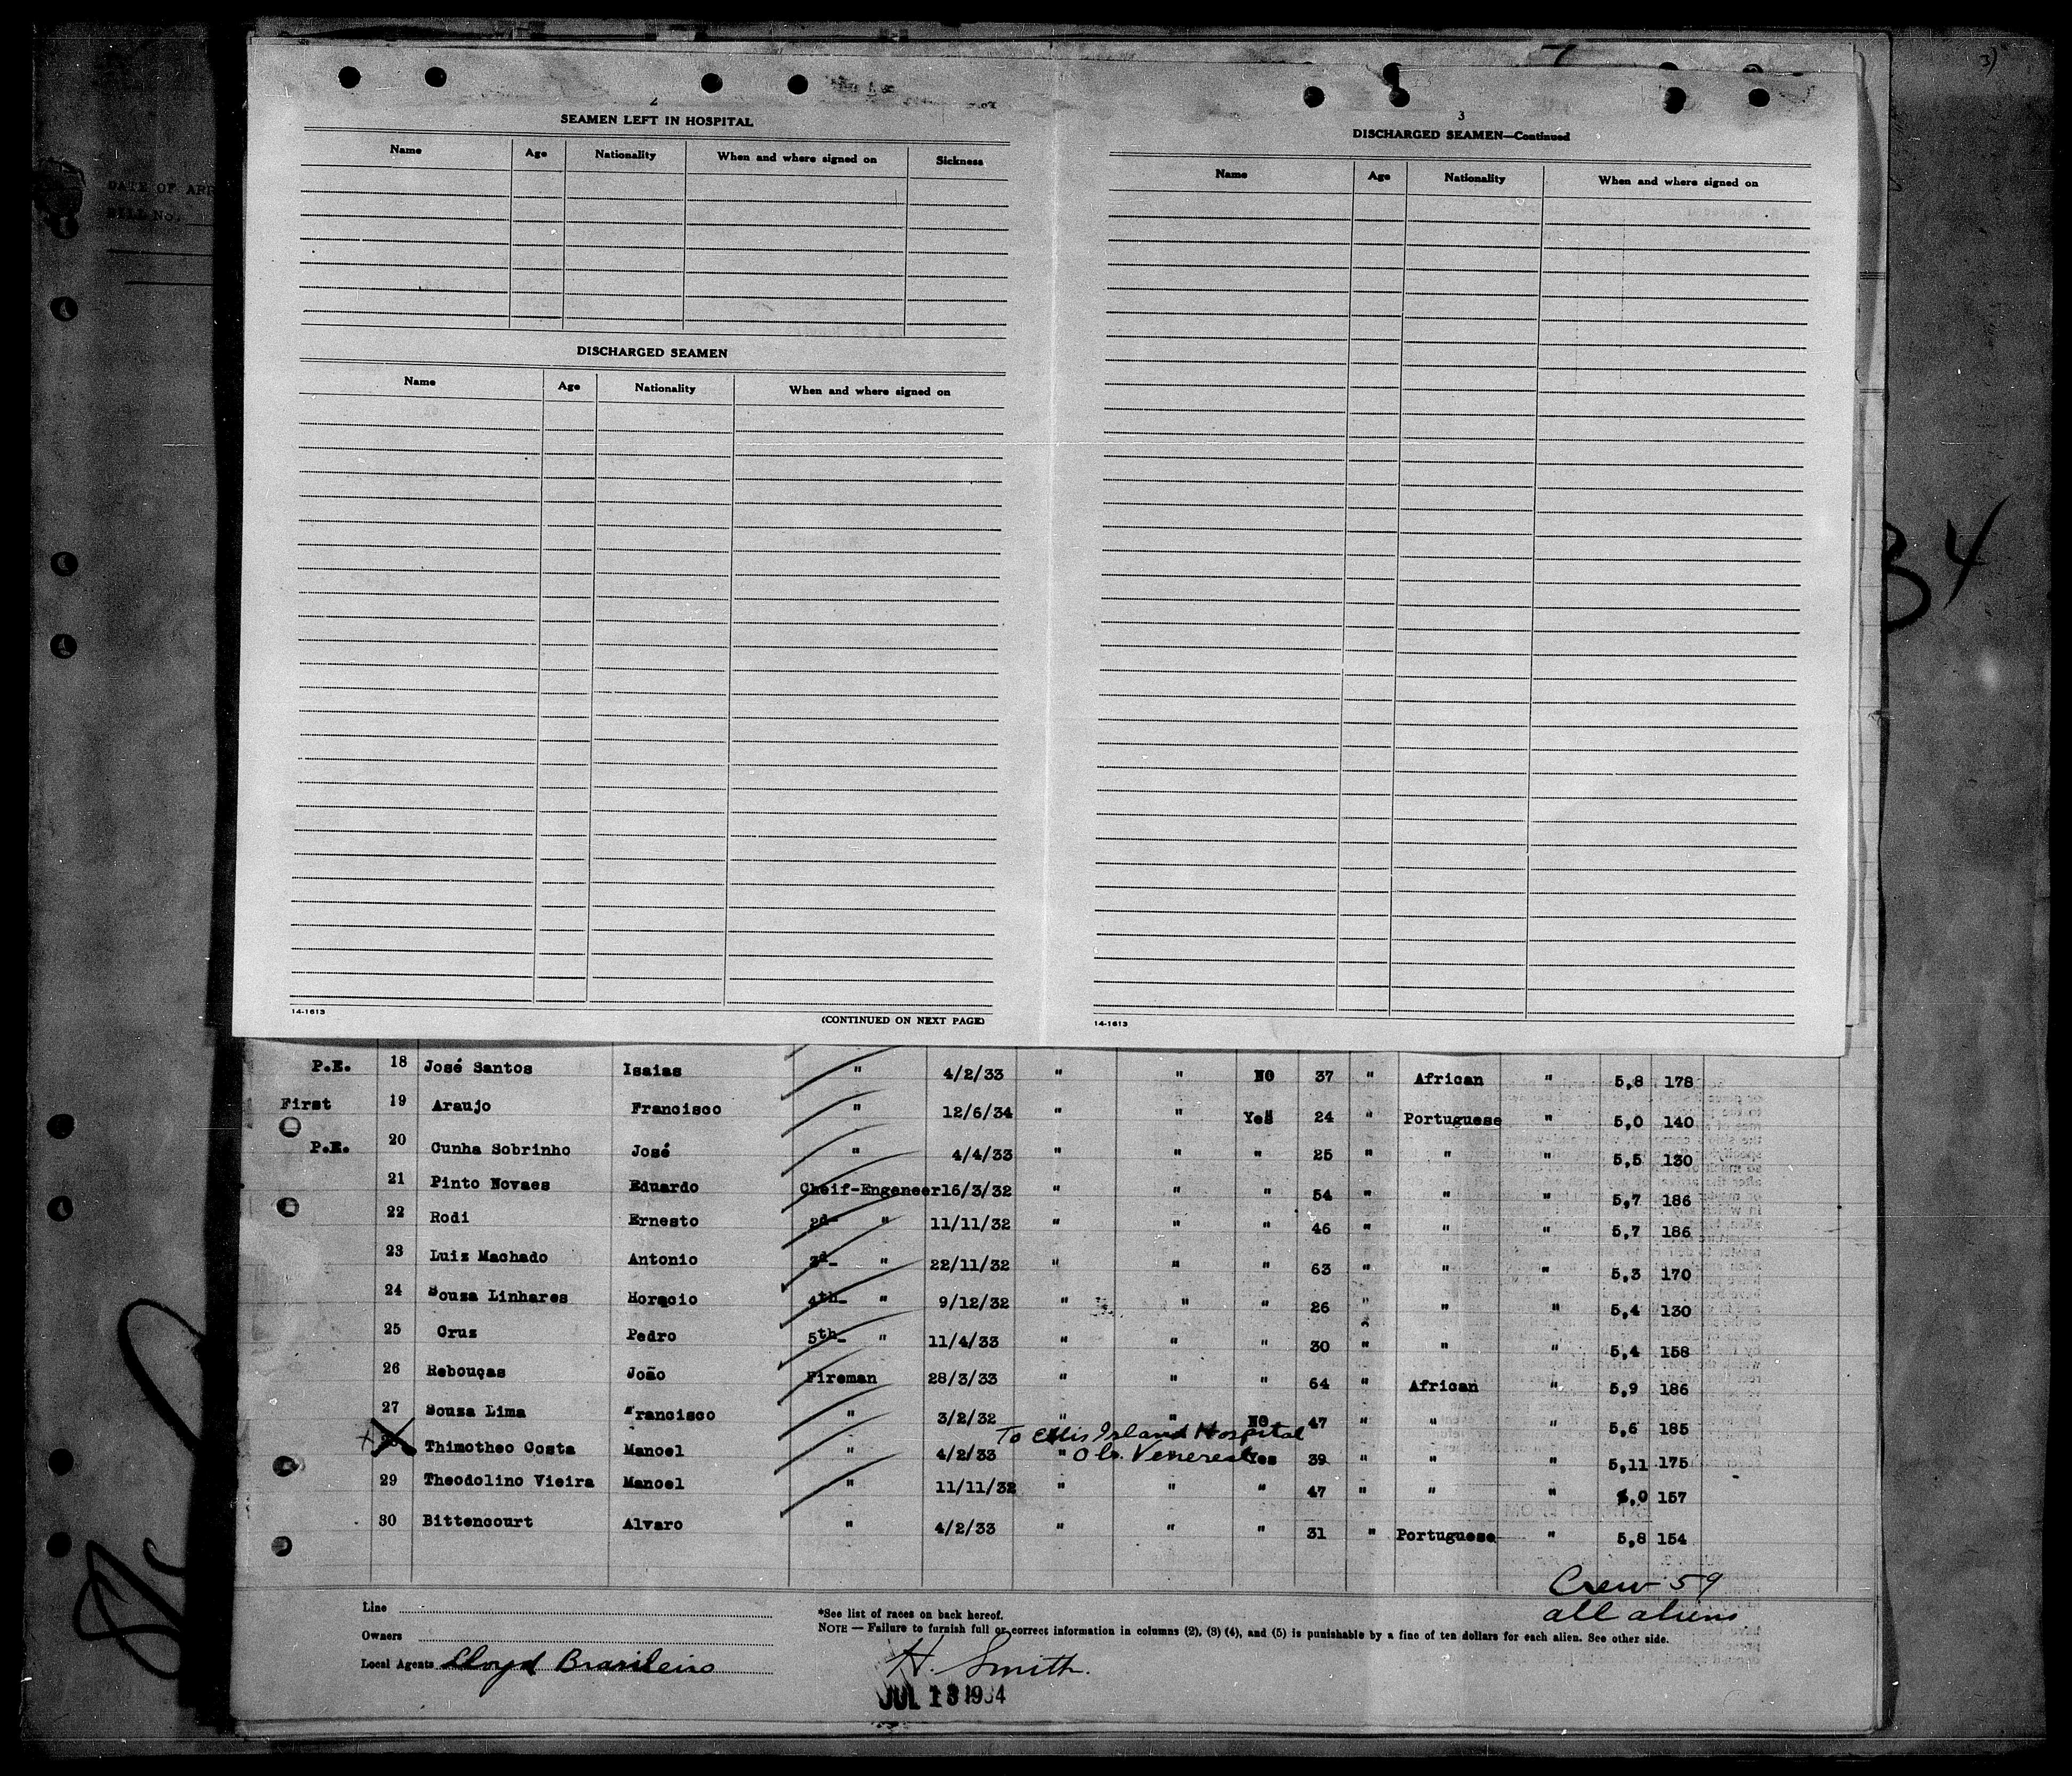 3)
DATE OF ARR
BILL No.
34
2
SEAMEN LEFT IN HOSPITAL
Name Age Nationality When and where signed on Sickness
DISCHARGED SEAMEN
Name Age Nationality When and where signed on
14-1613
(CONTINUED ON NEXT PAGE)
3
DISCHARGED SEAMEN—Continued
Name Age Nationality When and where signed on
14-1613
P.E. 18 José Santos Isaias " 4/2/33 " " NO 37 " African " 5,8 178
First 19 Araujo Francisco " 12/6/34 " " Yes 24 " Portuguese " 5,0 140
P.E. 20 Cunha Sobrinho José " 4/4/33 " " " 25 " " " 5,5 130
21 Pinto Novaes Eduardo Cheif-Engeneer 16/3/32 " " " 54 " " " 5,7 186
22 Rodi Ernesto 2d- " 11/11/32 " " " 46 " " " 5,7 186
23 Luiz Machado Antonio 3d- " 22/11/32 " " " 63 " " " 5,3 170
24 Souza Linhares Horacio 4th- " 9/12/32 " " " 26 " " " 5,4 130
25 Cruz Pedro 5th- " 11/4/33 " " " 30 " " " 5,4 158
26 Rebouças João Fireman 28/3/33 " " " 64 " African " 5,9 186
27 Souza Lima Francisco " 3/2/32 " " NO 47 " " " 5,6 185
To Ellis Island Hospital
Thimotheo Costa Manoel " 4/2/33 " Yes 39 " " " 5,11 175
Venereal
29 Theodolino Vieira Manoel " 11/11/32 " " " 47 " " " 6,0 157
30 Bittencourt Alvaro " 4/2/33 " " " 31 " Portuguese " 5,8 154
Crew 59
all aliens
Line
Owners
Local Agents Lloyd Brasileiro
*See list of races on back hereof.
NOTE — Failure to furnish full or correct information in columns (2), (3) (4), and (5) is punishable by a fine of ten dollars for each alien. See other side.
H. Smith
JUL 13 1934